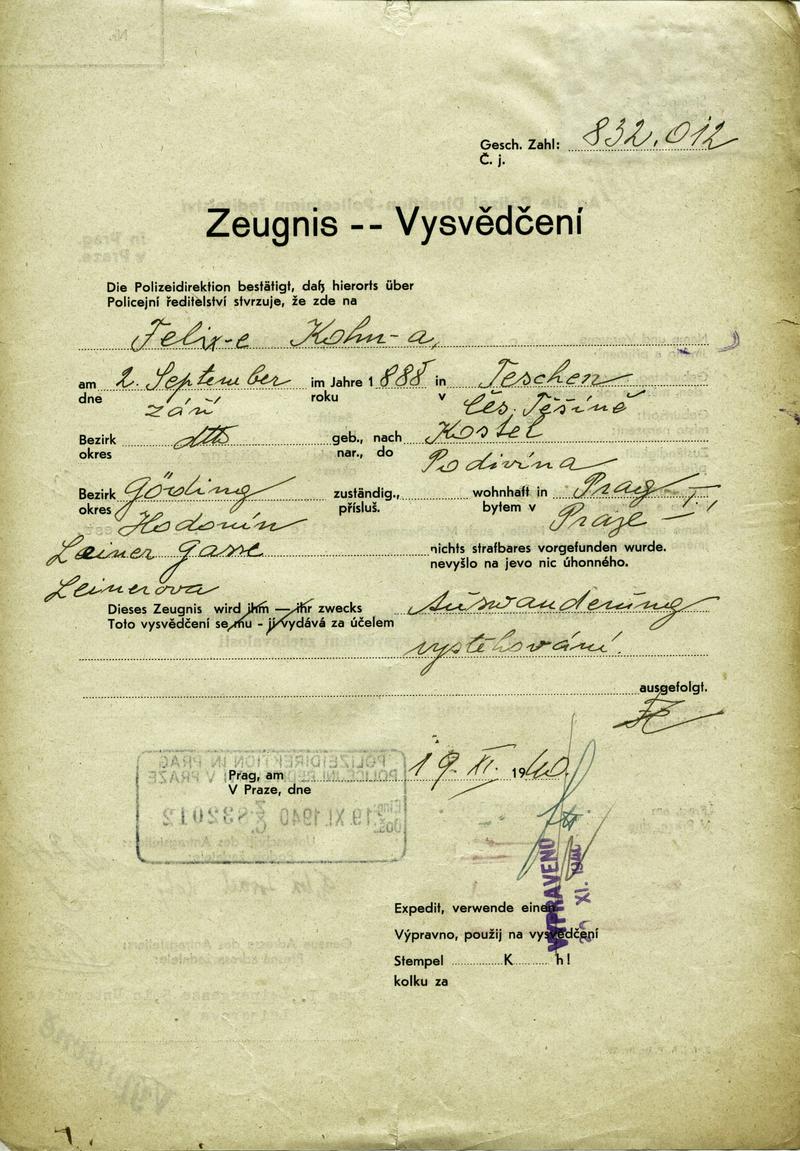 Gesch. Zahl: 832.012
Č. j.
Zeugnis -- Vysvědčení
Die Polizeidirektion bestätigt, daß hierorts über
Policejní ředitelství stvrzuje, že zde na
Felix-e Kohn-a,
am 2. September im Jahre 1888 in Teschen
dne září roku v Čes. Těšíně
Bezirk dtto geb., nach Kostel
okres nar., do Podivína
Bezirk Göding zuständig., wohnhaft in Prag I.,
okres Hodonín přísluš. bytem v Praze
Leiner Gasse nichts strafbares vorgefunden wurde.
Leinerova nevyšlo na jevo nic úhonného.
Dieses Zeugnis wird ihm — ihr zwecks Auswanderung
Toto vysvědčení se mu - jí vydává za účelem
vystěhování.
ausgefolgt.
Prag, am 19. XI. 1940.
V Praze, dne
POLIZEIDIREKTION IN PRAG
POLICEJNÍ ŘEDITELSTVÍ V PRAZE
Eing.
Došlo 19.XI.1940 Z Č 832012
VYPRAVENO
XI.
Expedit, verwende einen
Výpravno, použij na vysvědčení
Stempel K h!
kolku za